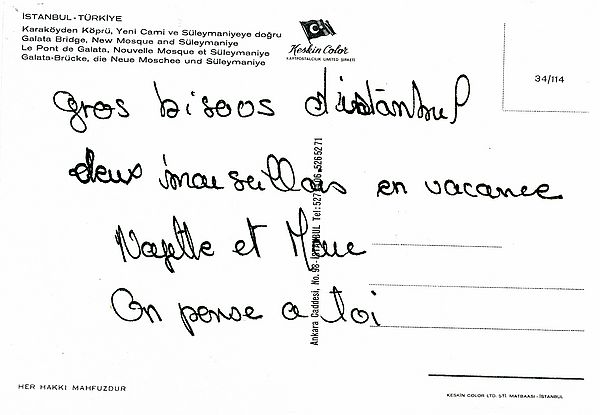 İSTANBUL-TÜRKİYE
Karaköyden Köprü, Yeni Cami ve Süleymaniyeye doğru
Galata Bridge, New Mosque and Süleymaniye
Le Pont de Galata, Nouvelle Mosque et Süleymaniye
Galata-Brücke, die Neue Moschee und Süleymaniye
Keskin Color
KARTPOSTALCILIK LIMITED ŞİRKETİ
34/114
gros bisous d'istanbul
deux marseillais en vacance
Najette et Marc
On pense a toi
Ankara Caddesi, No. 98-İSTANBUL Tel: 5265271
HER HAKKI MAHFUZDUR
KESKİN COLOR LTD. ŞTİ. MATBAASI-İSTANBUL